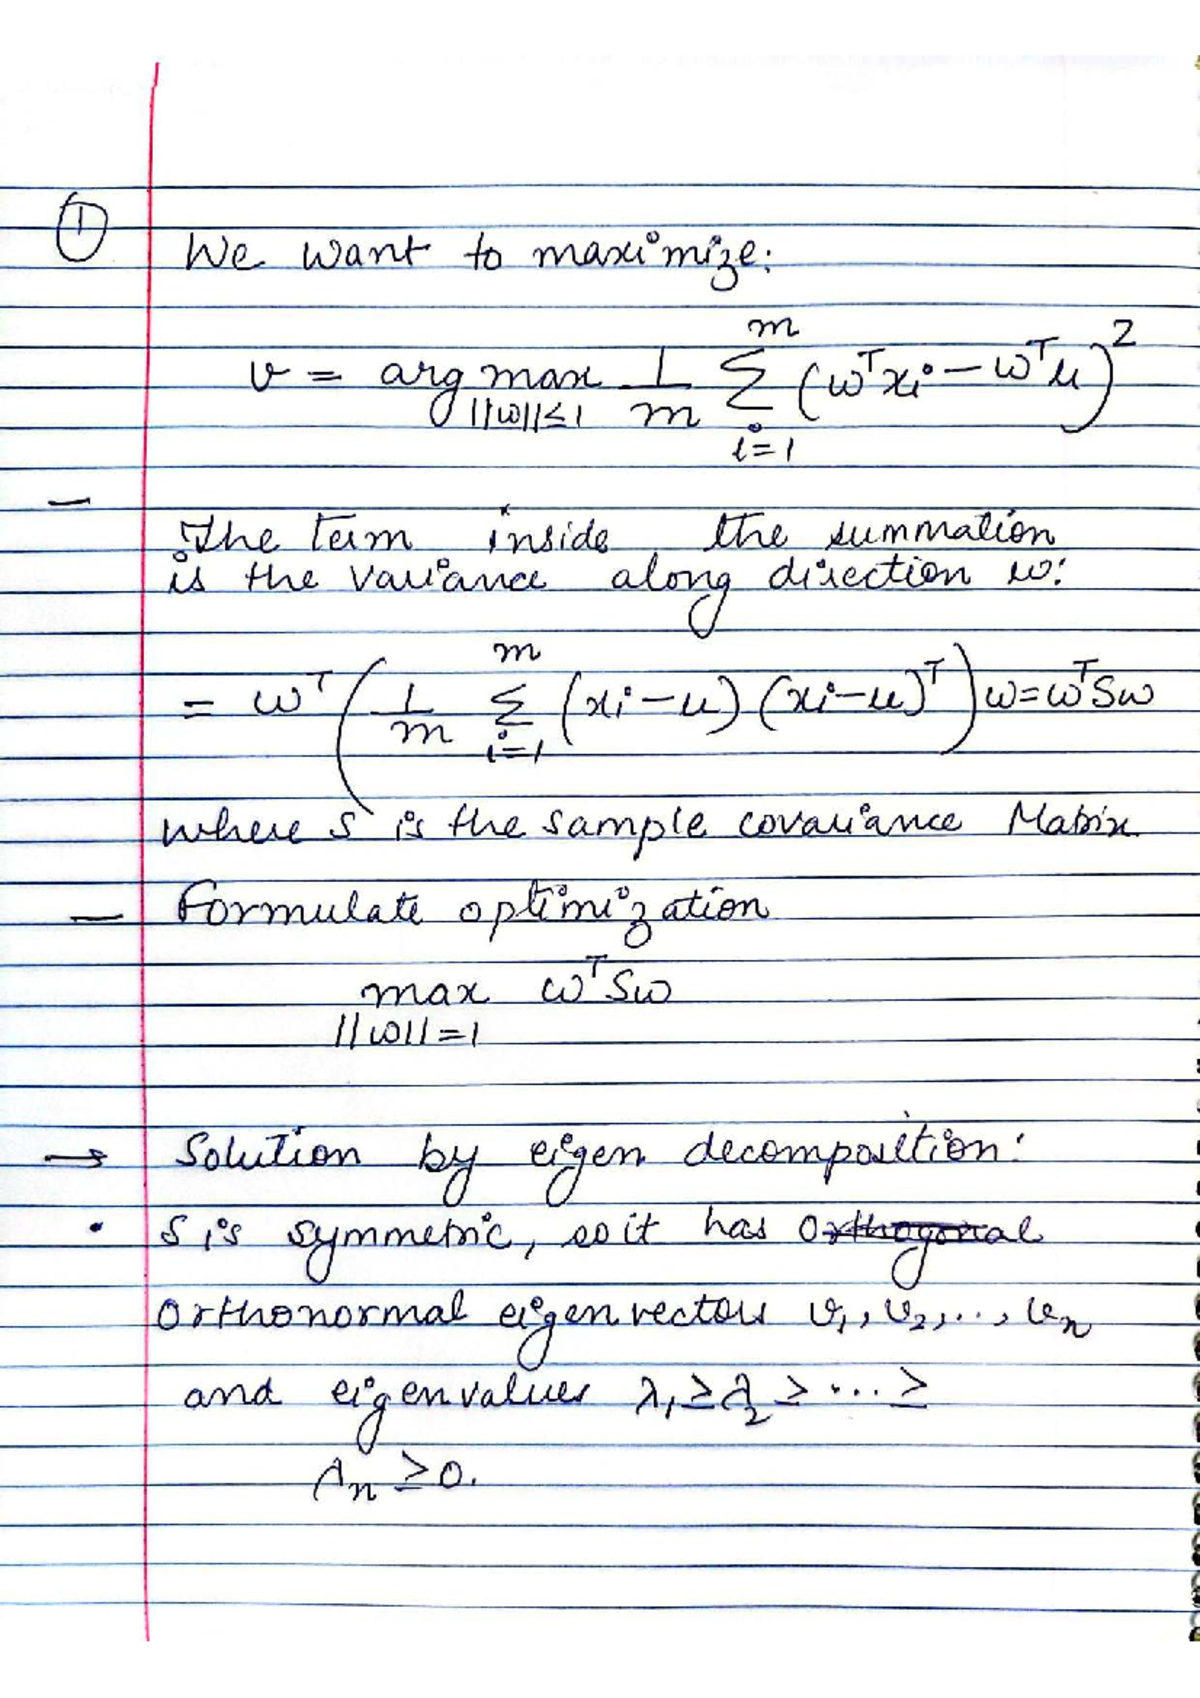 ①
We want to maximize:
v = arg max_{||w||≤1} 1/m Σ_{i=1}^{m} (wᵀxi − wᵀu)²
— The term inside the summation
is the variance along direction w:
= wᵀ( 1/m Σ_{i=1}^{m} (xi−u) (xi−u)ᵀ ) w = wᵀSw
where S is the sample covariance Matrix
— Formulate optimization
max_{||w||=1} wᵀSw
→ Solution by eigen decomposition:
• S is symmetric, so it has ~~Orthogonal~~
Orthonormal eigenvectors v₁, v₂, ..., vₙ
and eigenvalues λ₁ ≥ λ₂ ≥ ... ≥
λₙ ≥ 0.